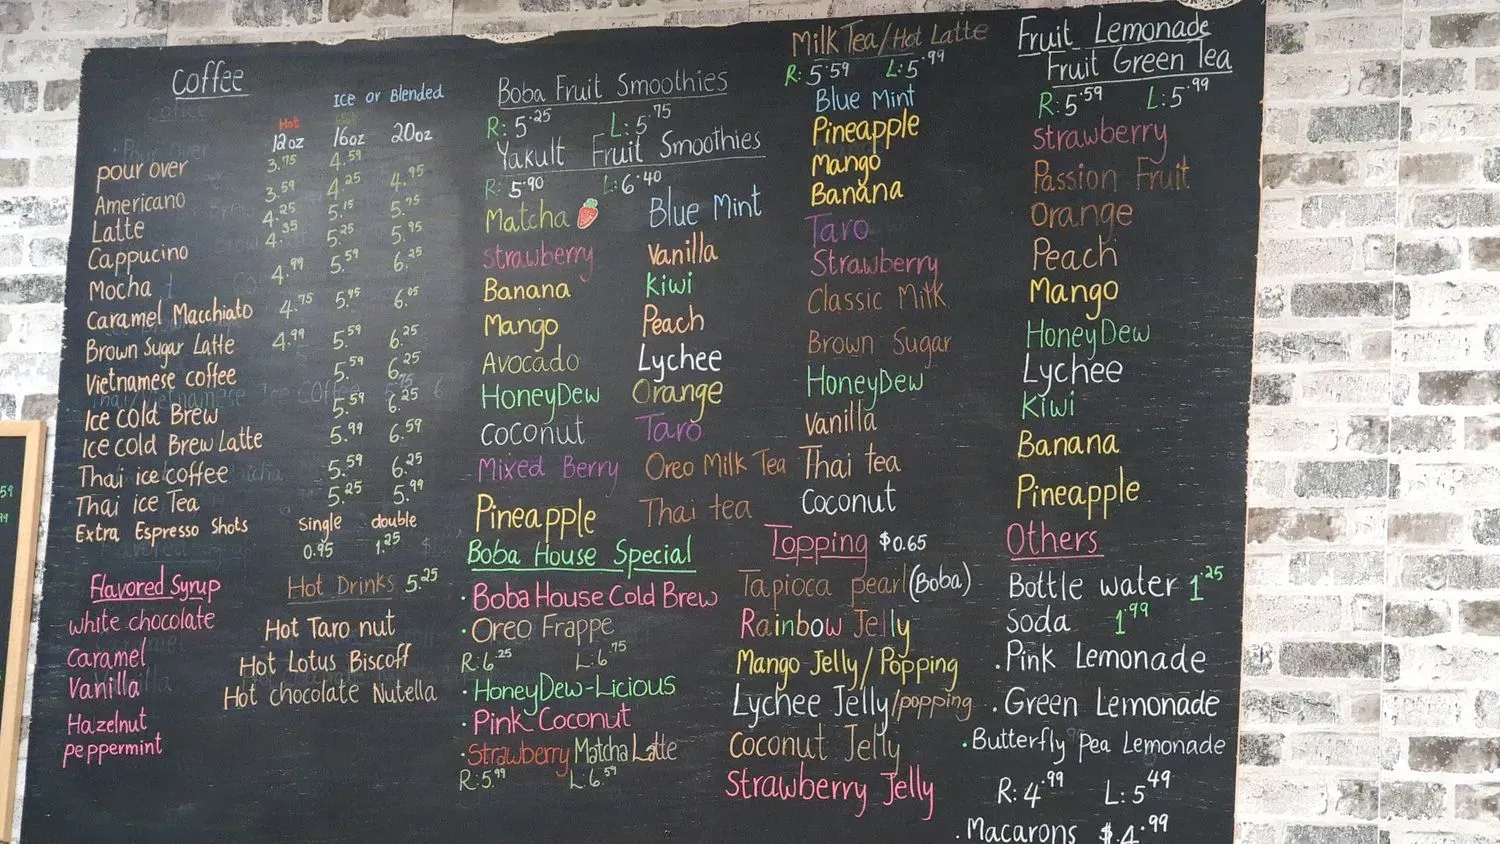 Coffee
Ice or Blended
Hot
12oz 16oz 20oz
pour over 3.75 4.59
Americano 3.59 4.25 4.95
Latte 4.25 5.15 5.75
Cappucino 4.35 5.25 5.95
Mocha 4.99 5.59 6.25
Caramel Macchiato 4.75 5.45 6.05
Brown Sugar Latte 4.99 5.59 6.25
Vietnamese coffee 5.59 6.25
Ice cold Brew 5.59 6.25
Ice cold Brew Latte 5.99 6.59
Thai ice coffee 5.59 6.25
Thai ice Tea 5.25 5.99
Extra Espresso Shots single double
0.95 1.25
Flavored Syrup
white chocolate
Caramel
Vanilla
Hazelnut
peppermint
Hot Drinks 5.25
Hot Taro nut
Hot Lotus Biscoff
Hot chocolate Nutella
Boba Fruit Smoothies
R: 5.25 L: 5.75
Yakult Fruit Smoothies
R: 5.90 L: 6.40
Matcha
strawberry
Banana
Mango
Avocado
HoneyDew
Coconut
Mixed Berry
Pineapple
Blue Mint
Vanilla
Kiwi
Peach
Lychee
Orange
Taro
Oreo Milk Tea
Thai tea
Boba House Special
· Boba House Cold Brew
· Oreo Frappe
R: 6.25 L: 6.75
· HoneyDew-Licious
· Pink Coconut
· Strawberry Matcha Latte
R: 5.99 L: 6.59
Milk Tea/Hot Latte
R: 5.59 L: 5.99
Blue Mint
Pineapple
Mango
Banana
Taro
Strawberry
Classic Milk
Brown Sugar
HoneyDew
Vanilla
Thai tea
Coconut
Topping $0.65
Tapioca pearl (Boba)
Rainbow Jelly
Mango Jelly/Popping
Lychee Jelly/popping
Coconut Jelly
Strawberry Jelly
Fruit Lemonade
Fruit Green Tea
R: 5.59 L: 5.99
strawberry
Passion Fruit
Orange
Peach
Mango
HoneyDew
Lychee
Kiwi
Banana
Pineapple
Others
Bottle water 1.25
Soda 1.99
· Pink Lemonade
· Green Lemonade
· Butterfly pea Lemonade
R: 4.99 L: 5.49
· Macarons $4.99